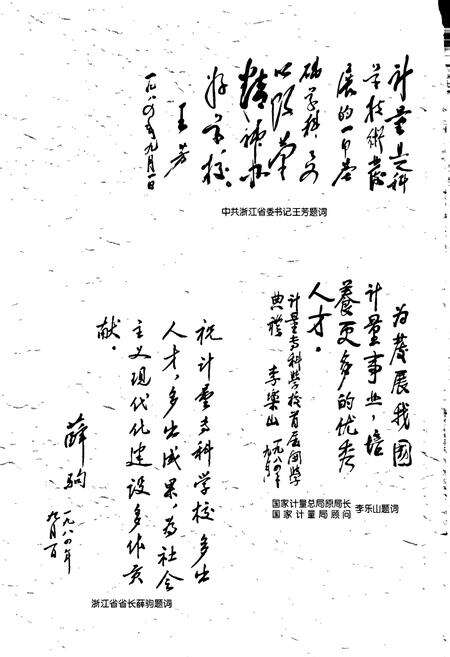 计量是科
学技术发
展的一门基
础学科，要
以改革
精神办
好学校。
王芳
一九八五年九月一日
中共浙江省委书记王芳题词
为发展我国
计量事业，培
养更多的优秀
人才。
计量专科学校首届开学
典礼 李乐山 一九八五年
国家计量总局原局长
国家计量局顾问 李乐山题词
祝计量专科学校多出
人才，多出成果，为社会
主义现代化建设多作贡
献。
薛驹
一九八五年
九月一日
浙江省省长薛驹题词